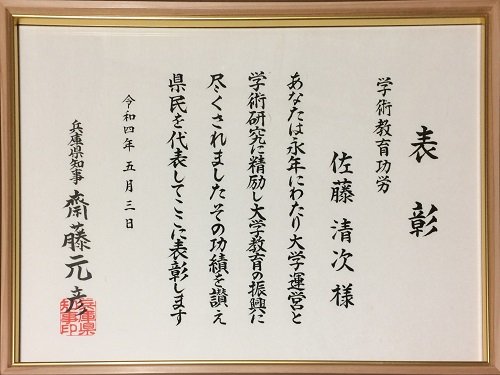 表彰
学術教育功労
佐藤清次様
あなたは永年にわたり大学運営と
学術研究に精励し大学教育の振興に
尽くされましたその功績を讃え
県民を代表してここに表彰します
令和四年五月三日
兵庫県知事 齋藤元彦
兵庫県
知事印